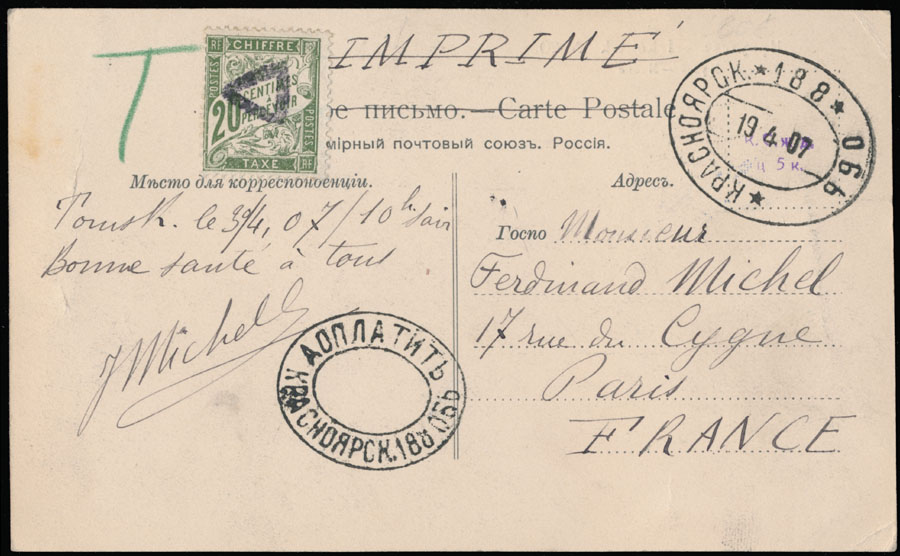 T
IMPRIMÉ
RF CHIFFRE RF
POSTES
20 CENTIMES
À
PERCEVOIR
POSTES
TAXE RF
ое письмо. — Carte Postale
мірный почтовый союзъ. Россія.
КРАСНОЯРСК. * 188 * ОБЬ *
19 4 07
5 к.
Мѣсто для корреспонденціи.
Адресъ.
Tomsk. le 3/4, 07 / 10h Soir
Bonne santé à tous
JMichel
Госпо Monsieur
Ferdinand Michel
17 rue du Cygne
Paris
FRANCE
ДОПЛАТИТЬ
КРАСНОЯРСК.188 ОБЬ